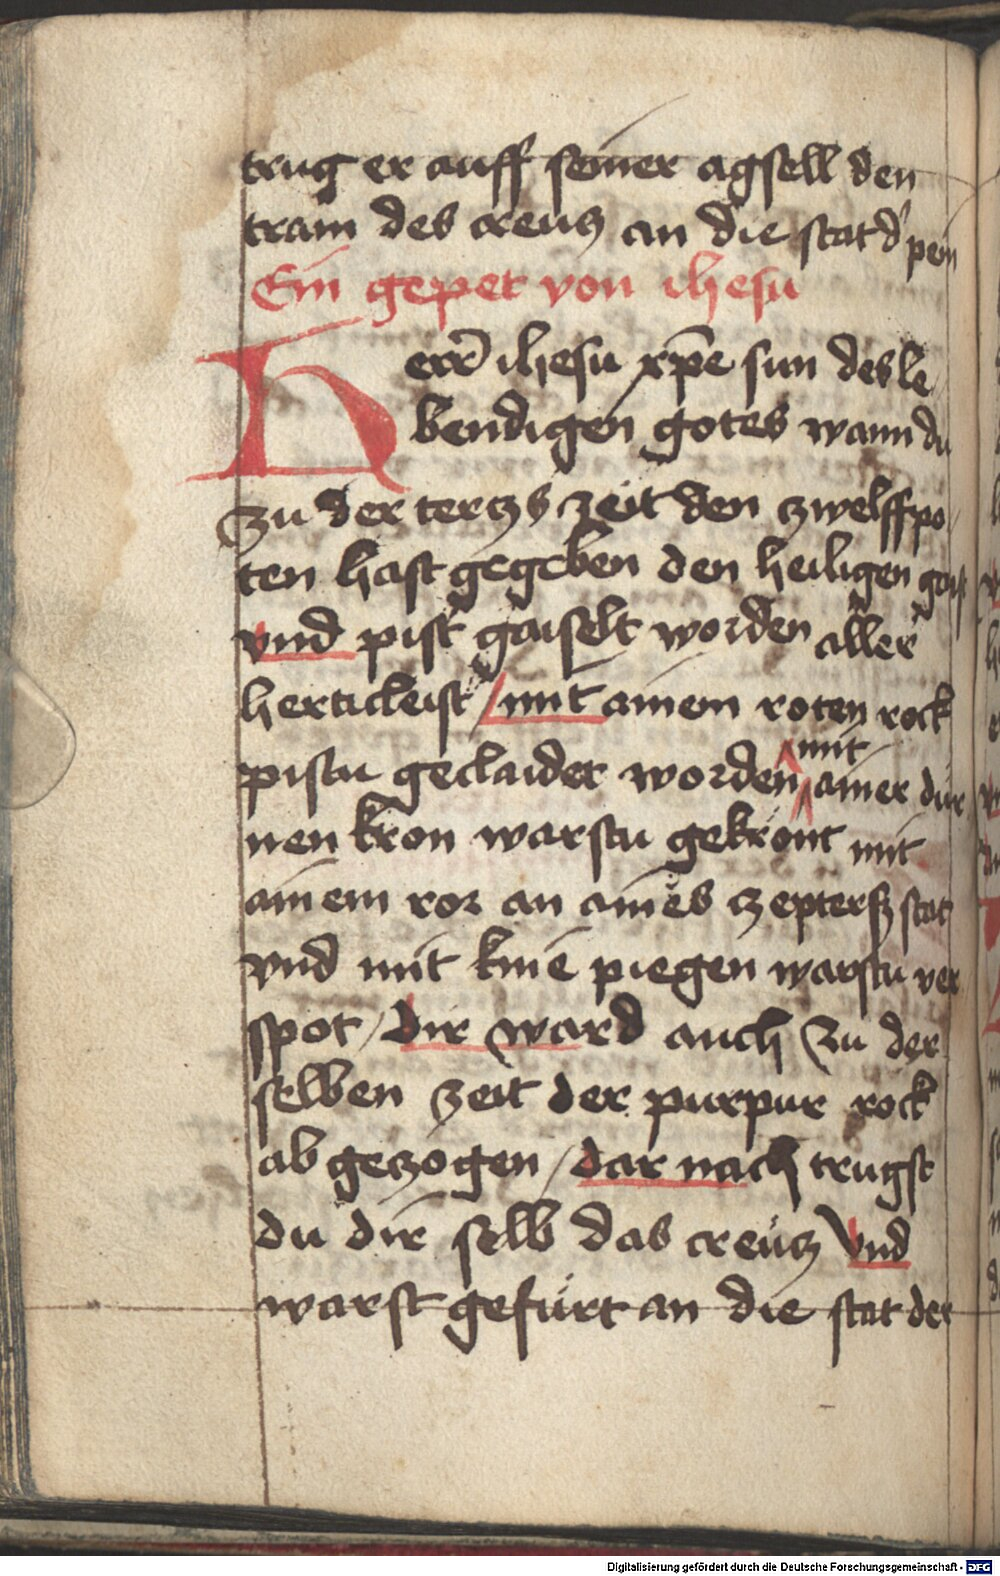 trug er auff seiner agsell den
tram des creucz an die stat d' pein
Ein gepet von ihesu
Herr ihesu xpe sun des le
bendigen gotes wann du
zu der terczs zeit den zwelffpo
ten hast gegeben den heiligen gaist
vnd pist gaiselt worden aller
herticleist / mit ainem roten rock
pistu geclaidet worden mit ainer dür
nen kron warstu gekrönt mit
ainem ror an aines zepters stat
vnd mit knie piegen warstu ver
spot / dir ward auch zu der
selben zeit der purpur rock
ab geczogen / dar nach trugst
du dir selb das creücz Vnd
warst gefürt an die stat der
Digitalisierung gefördert durch die Deutsche Forschungsgemeinschaft - DFG